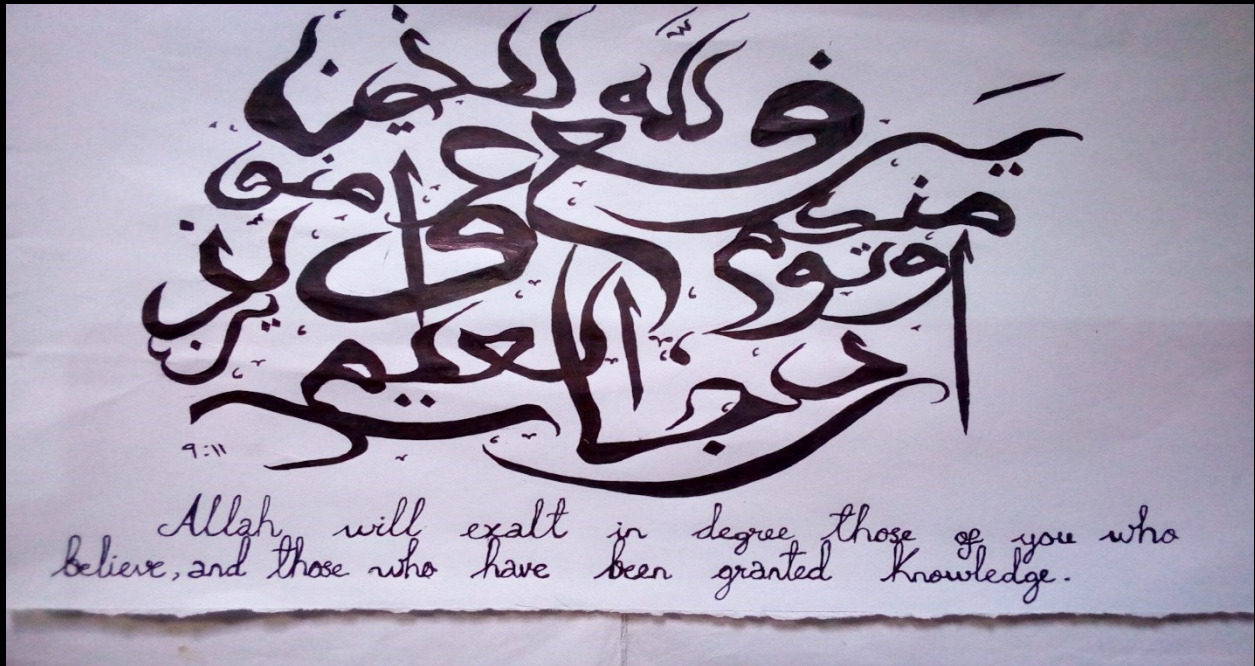 يرفع الله الذين
امنوا منكم
والذين اوتوا
العلم درجات
٩:١١
Allah will exalt in degree those of you who
believe, and those who have been granted knowledge.